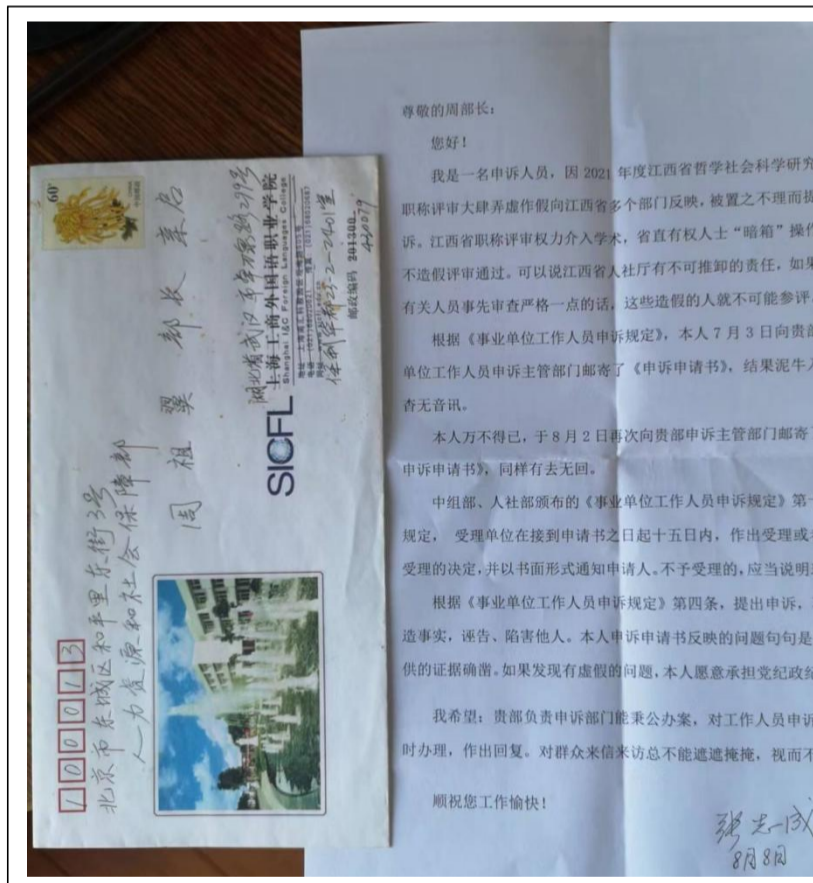 100013
北京市东城区和平里东街3号
人力资源和社会保障部
周祖翼 部长 亲启
60
湖北省武汉市
上海工商外国语职业学院
Shanghai I&C Foreign Languages College
保利华都23-2-2401室
邮政编码 201300
430079
SICFL
尊敬的周部长：
您好！
我是一名申诉人员，因2021年度江西省哲学社会科学研究
职称评审大肆弄虚作假向江西省多个部门反映，被置之不理而提
诉。江西省职称评审权力介入学术，省直有权人士“暗箱”操作
不造假评审通过。可以说江西省人社厅有不可推卸的责任，如果
有关人员事先审查严格一点的话，这些造假的人就不可能参评。
根据《事业单位工作人员申诉规定》，本人7月3日向贵部
单位工作人员申诉主管部门邮寄了《申诉申请书》，结果泥牛入
杳无音讯。
本人万不得已，于8月2日再次向贵部申诉主管部门邮寄了
申诉申请书》，同样有去无回。
中组部、人社部颁布的《事业单位工作人员申诉规定》第十
规定， 受理单位在接到申请书之日起十五日内，作出受理或
受理的决定，并以书面形式通知申请人。不予受理的，应当说明
根据《事业单位工作人员申诉规定》第四条，提出申诉，
造事实，诬告、陷害他人。本人申诉申请书反映的问题句句是
供的证据确凿。如果发现有虚假的问题，本人愿意承担党纪政纪
我希望：贵部负责申诉部门能秉公办案，对工作人员申诉
时办理，作出回复。对群众来信来访总不能遮遮掩掩，视而不
顺祝您工作愉快！
张志成
8月8日